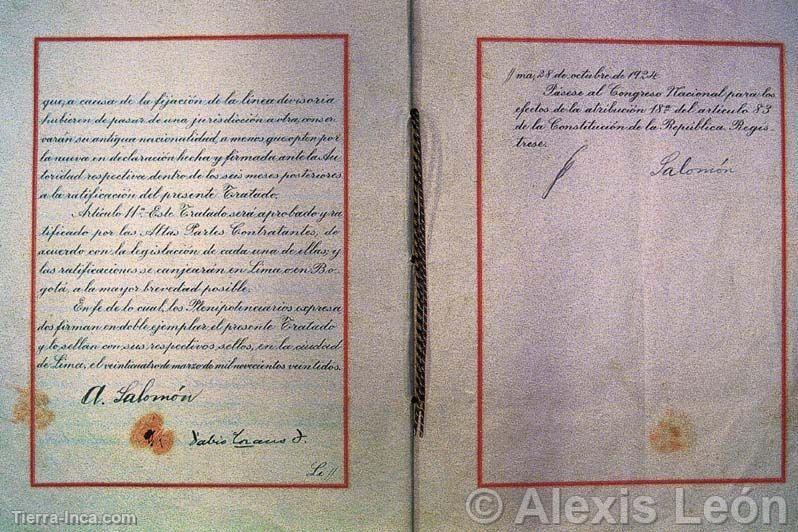 que, a causa de la fijación de la línea divisoria
hubieren de pasar de una jurisdicción a otra, conser
varán su antigua nacionalidad, a menos que opten por
la nueva en declaración hecha y firmada ante la Au
toridad respectiva, dentro de los seis meses posteriores
a la ratificación del presente Tratado.
Artículo 11º. Este Tratado será aprobado y ra
tificado por las Altas Partes Contratantes, de
acuerdo con la legislación de cada una de ellas; y
las ratificaciones se canjearán en Lima o en Bo-
gotá, a la mayor brevedad posible.
En fe de lo cual, los Plenipotenciarios expresa
dos firman en doble ejemplar el presente Tratado
y lo sellan con sus respectivos sellos, en la ciudad
de Lima, el veinticuatro de marzo de mil novecientos veintidos.
A. Salomón
Fabio Lozano T.
Li
ma, 28 de octubre de 1924
Pásese al Congreso Nacional para los
efectos de la atribución 18ª del artículo 83
de la Constitución de la República. Regis-
trese.
Salomón
Tierra-Inca.com
© Alexis León